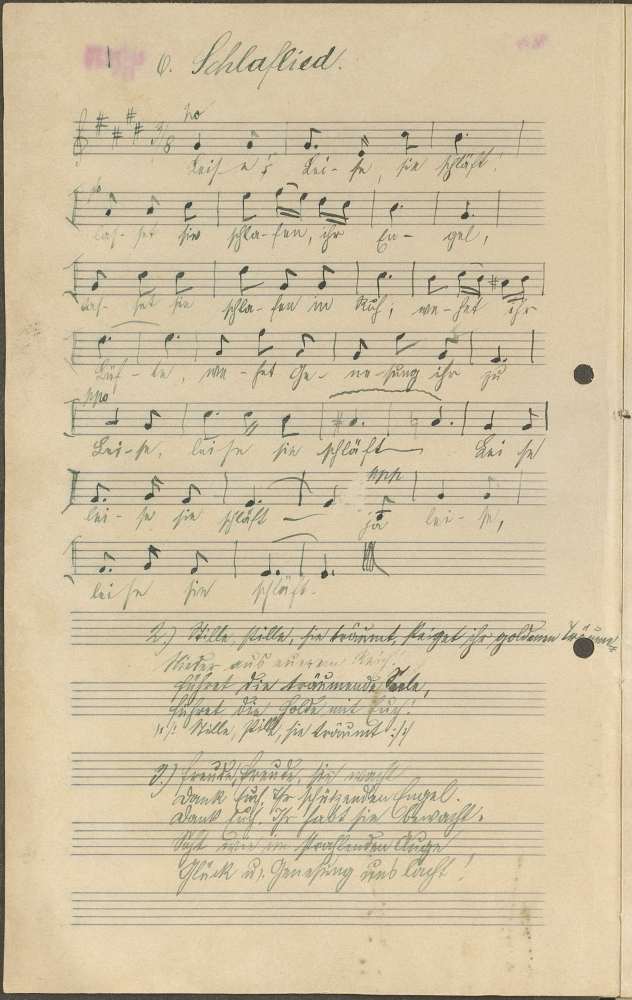 6. Schlaflied.
po
Leis-e, Lei-se, sie schläft!
po
las-set sie schla-fen, ihr En-gel,
las-set sie schla-fen in Ruh; we-het ihr
Lüf-te, we-het Ge-ne-sung ihr zu
ppo
Lei-se, leise sie schläft Lei se
lei-se sie schläft ja lei-se,
ppp
leise sie schläft.
2.) Stille, stille, sie träumt, steiget ihr goldenen Träume
Nieder aus eurem Reich!
Führet die träumende Seele,
Führet die Holde mit Euch!
:/: Stille, still, sie träumt :/:
3.) Freude, Freude, sie wacht
Dank Euch, Ihr schützenden Engel.
Dank Euch, Ihr habt sie bewacht.
Seht wie im strahlenden Auge
Glück u. Genesung uns lacht!